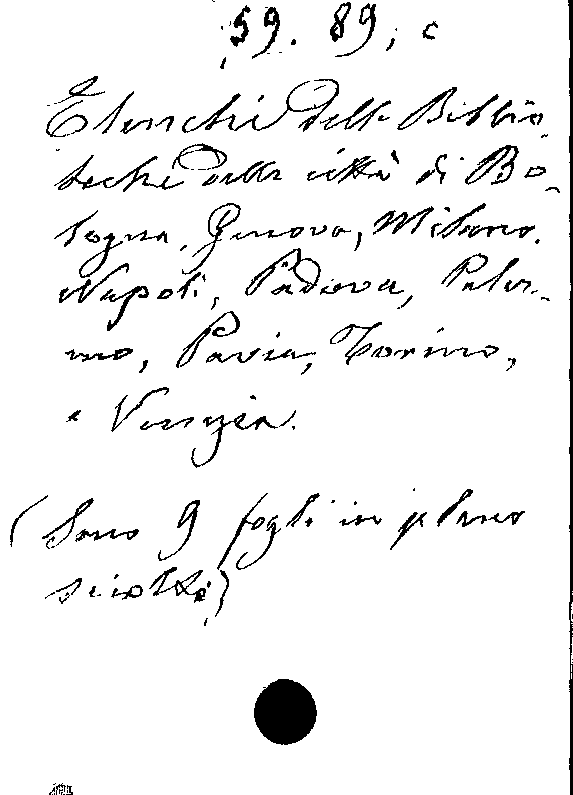 59. 89, c
Elenchi delle Biblio-
teche delle città di Bo-
logna, Genova, Milano,
Napoli, Padova, Paler-
mo, Pavia, Torino,
e Venezia.
(Sono 9 fogli in plano
sciolti)